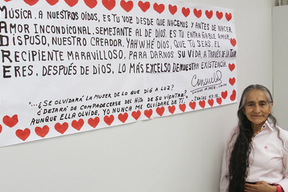 MÚSICA. A NUESTROS OÍDOS, ES TU VOZ DESDE QUE NACEMOS Y ANTES DE NACER.
AMOR INCONDICIONAL, SEMEJANTE AL DE DIOS. ES TU ENTRAÑABLE AMOR.
DISPUSO, NUESTRO CREADOR. YAHWHÉ DIOS, QUE TÚ SEAS. EL
RECIPIENTE MARAVILLOSO. PARA DARNOS SU VIDA A TRAVÉS DE
ERES. DESPUÉS DE DIOS. LO MÁS EXCELSO DE NUESTRA EXISTENCIA.
"...¿SE OLVIDARÁ LA MUJER DE LO QUE DIÓ A LUZ?
¿DEJARÁ DE COMPADECERSE DEL HIJO DE SU VIENTRE?
AUNQUE ELLA OLVIDE, YO NUNCA ME OLVIDARÉ DE TI."